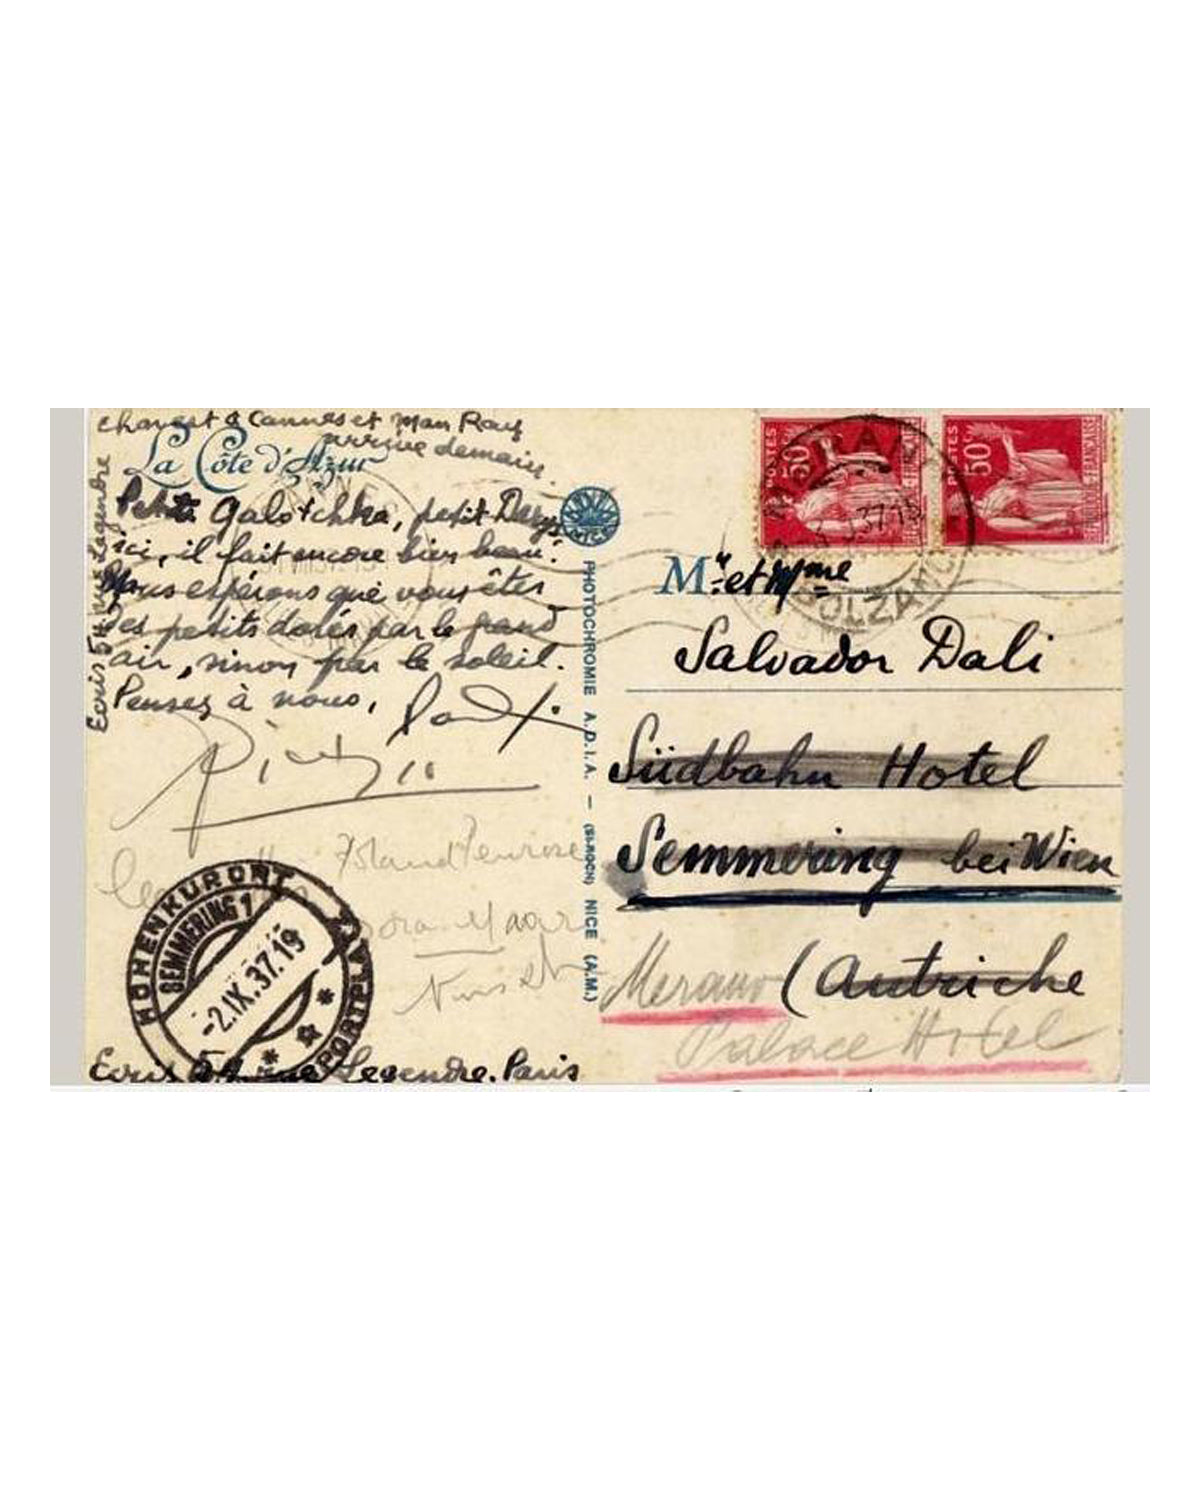 changent à Cannes et Man Ray
arrive demain.
La Côte d'Azur
Petite Galotchka, petit Dalys
ici, il fait encore bien beau.
Nous espérons que vous êtes
des petits dorés par le grand
air, sinon par le soleil.
Pensez à nous,
Paul
Picasso
Roland Penrose
Dora Maar
Nusch
Ecris 54 rue Legendre
Ecris 54 rue Legendre. Paris
HÖHENKURORT
SEMMERING 1
-2.IX.37.19
PORTPLATZ
PHOTOCHROMIE A.D.I.A. — NICE (A.M.)
POSTES
50c
REPUBLIQUE FRANÇAISE
POSTES
50c
REPUBLIQUE FRANÇAISE
BOLZANO
37.15
Mr et Mme
Salvador Dali
Südbahn Hotel
Semmering bei Wien
(Autriche
Merano
Palace Hotel